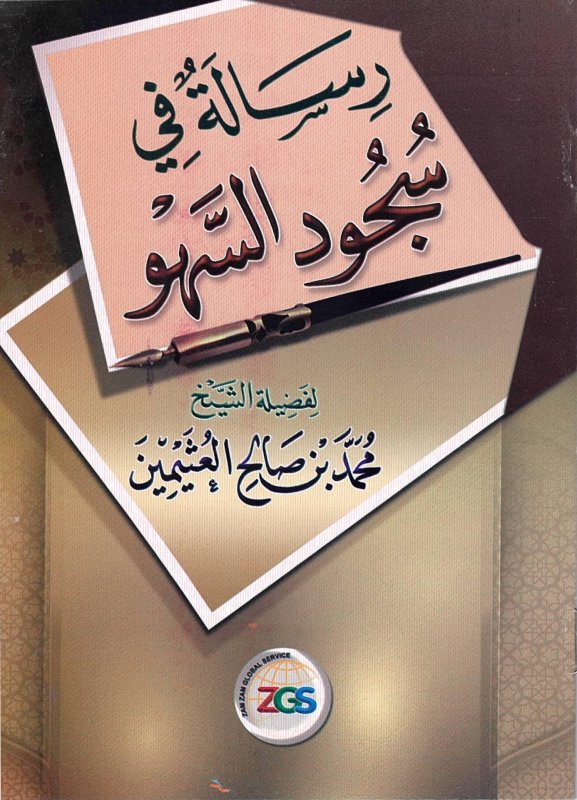 رِسَالَةٌ فِي
سُجُود السَّهْو
لِفَضِيلَة الشَّيْخ
مُحَمَّد بْن صَالِح العُثَيْمِينَ
ZAM ZAM GLOBAL SERVICE
ZGS